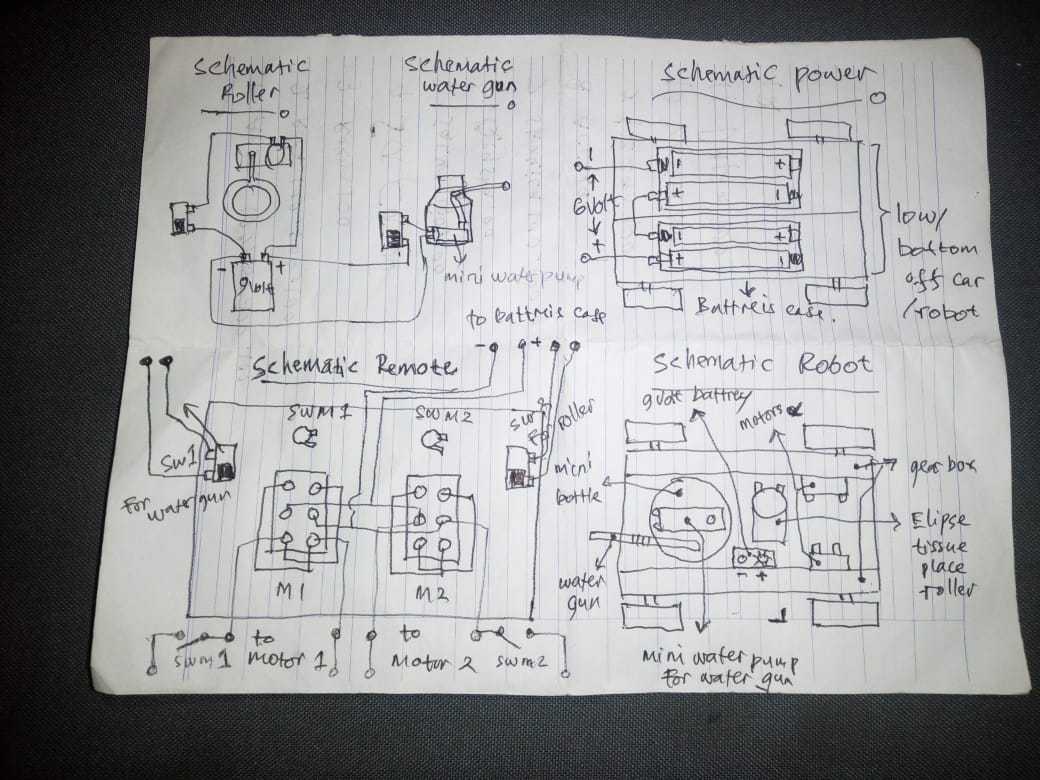 Schematic
Roller
Schematic
water gun
Schematic power
-
+
9volt
mini water pump
6volt
+
-
+
+
-
-
+
+
-
low/
bottom
off car
/robot
Battreis case.
to battreis case
-
+
Schematic Remote
SWM1
SWM2
SW1
for
water gun
roller
M1
M2
SWM1
to
motor 1
to
Motor 2
SWM2
Schematic Robot
9volt battrey
motors
micni
bottle
gear box
Elipse
tissue
place
roller
water
gun
- +
mini water pump
for water gun